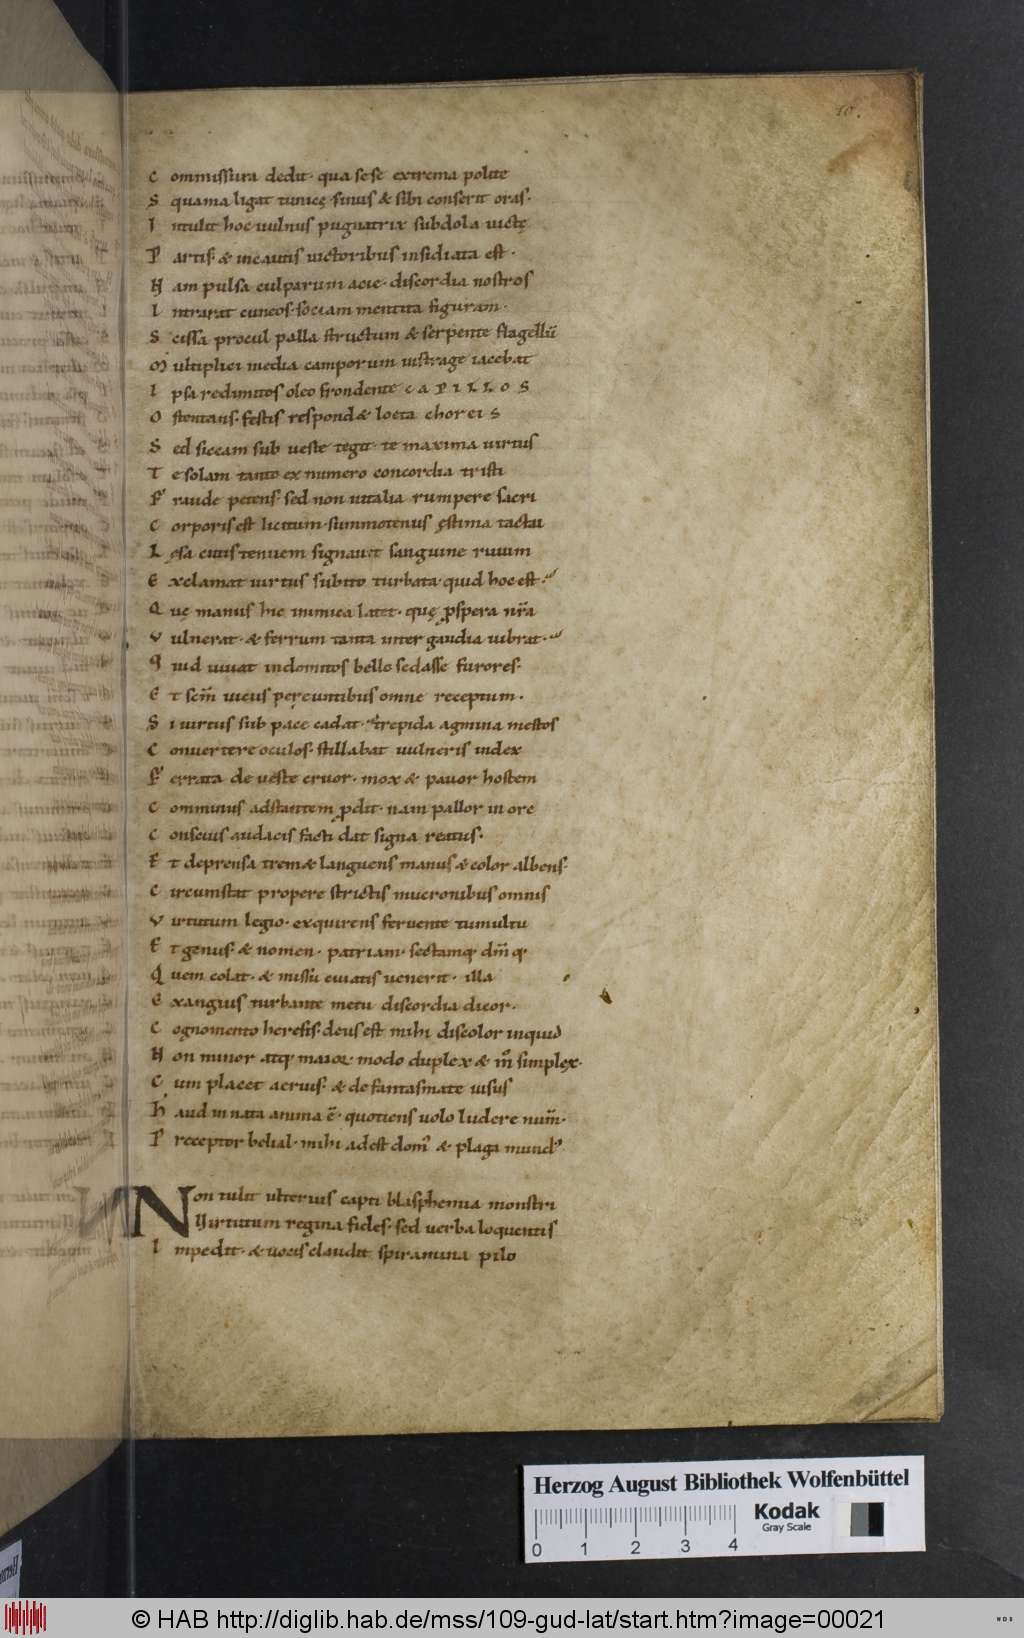 10.
C ommissura dedit· qua sese extrema polite
S quama ligat tunicę sinus & sibi conserit oras·
I ntulit hoc uulnus pugnatrix subdola uictę
P artis· & incautis uictoribus insidiata est·
N am pulsa culparum acie· discordia nostros
I ntrarat cuneos· sociam mentita figuram·
S cissa procul palla structum & serpente flagellū
M ultiplici media camporum in strage iacebat
I psa redimitos oleo frondente CAPILLOS
O stentans· festis respond& loeta choreis
S ed siccam sub ueste tegit· te maxima uirtus
T e solam tanto ex numero concordia tristi
F raude petens· sed non uitalia rumpere sacri
C orporis est licitum· summotenus ęstima tactai
L ęsa cutis tenuem signauit sanguine riuum
E xclamat uirtus subito turbata· quid hoc est·
Q uę manus hic inimica latet· quę ꝓspera nr̄a
V ulnerat· & ferrum tanta inter gaudia uibrat·
q uid iuuat indomitos bello sedasse furores·
E t scm̄ uicus pereuntibus omne receptum·
S i uirtus sub pace cadat· trepida agmina mestos
C onuertere oculos· stillabat uulneris index
F errata de ueste cruor· mox & pauor hostem
C omminus adstantem ꝓdit· nam pallor in ore
C onscius audacis facti dat signa reatus·
E t deprensa trem& languens manus & color albens·
C ircumstat propere strictis mucronibus omnis
V irtutum legio· exquirens feruente tumultu
E t genus· & nomen· patriam· sectamq· dm̄q·
Q uem colat· & missu cuiatis uenerit· illa
E xanguis turbante metu discordia dicor·
C ognomento heresis· deus est mihi discolor inquid
N on minor atq maior· modo duplex & m̊ simplex·
C um placet aerius· & de fantasmate uisus
h aud innata anima ē· quotiens uolo ludere num̄·
P receptor belial· mihi adest dom' & plaga mund'
Non tulit ulterius capti blasphemia monstri
Virtutum regina fides· sed uerba loquentis
I mpedit· & uocis claudit spiramina pilo
Herzog August Bibliothek Wolfenbüttel
Kodak
Gray Scale
0 1 2 3 4
© HAB http://diglib.hab.de/mss/109-gud-lat/start.htm?image=00021